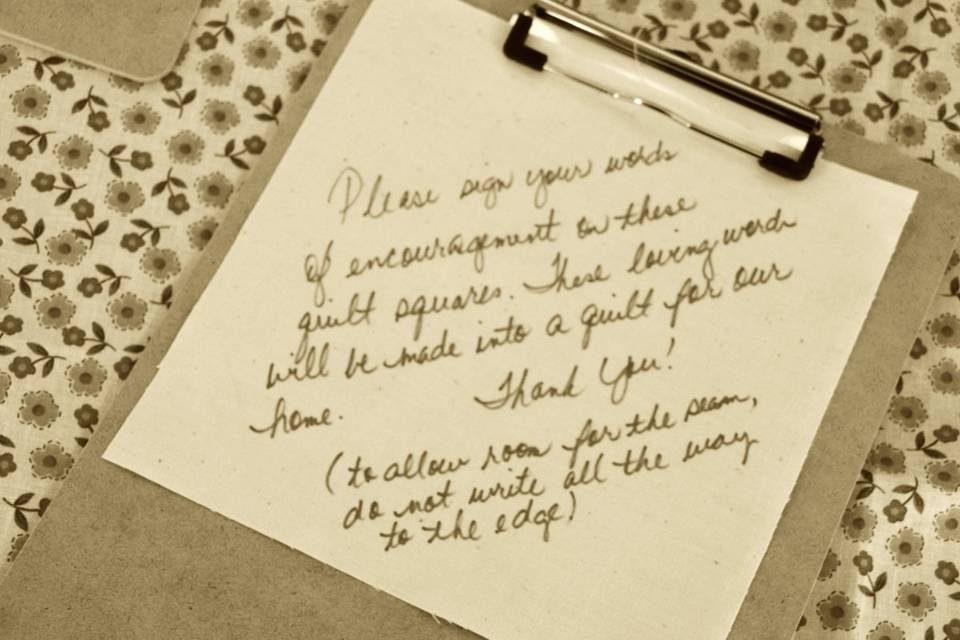 Please sign your words
of encouragement on these
quilt squares. These loving words
will be made into a quilt for our
home. Thank You!
(to allow room for the seam,
do not write all the way
to the edge)